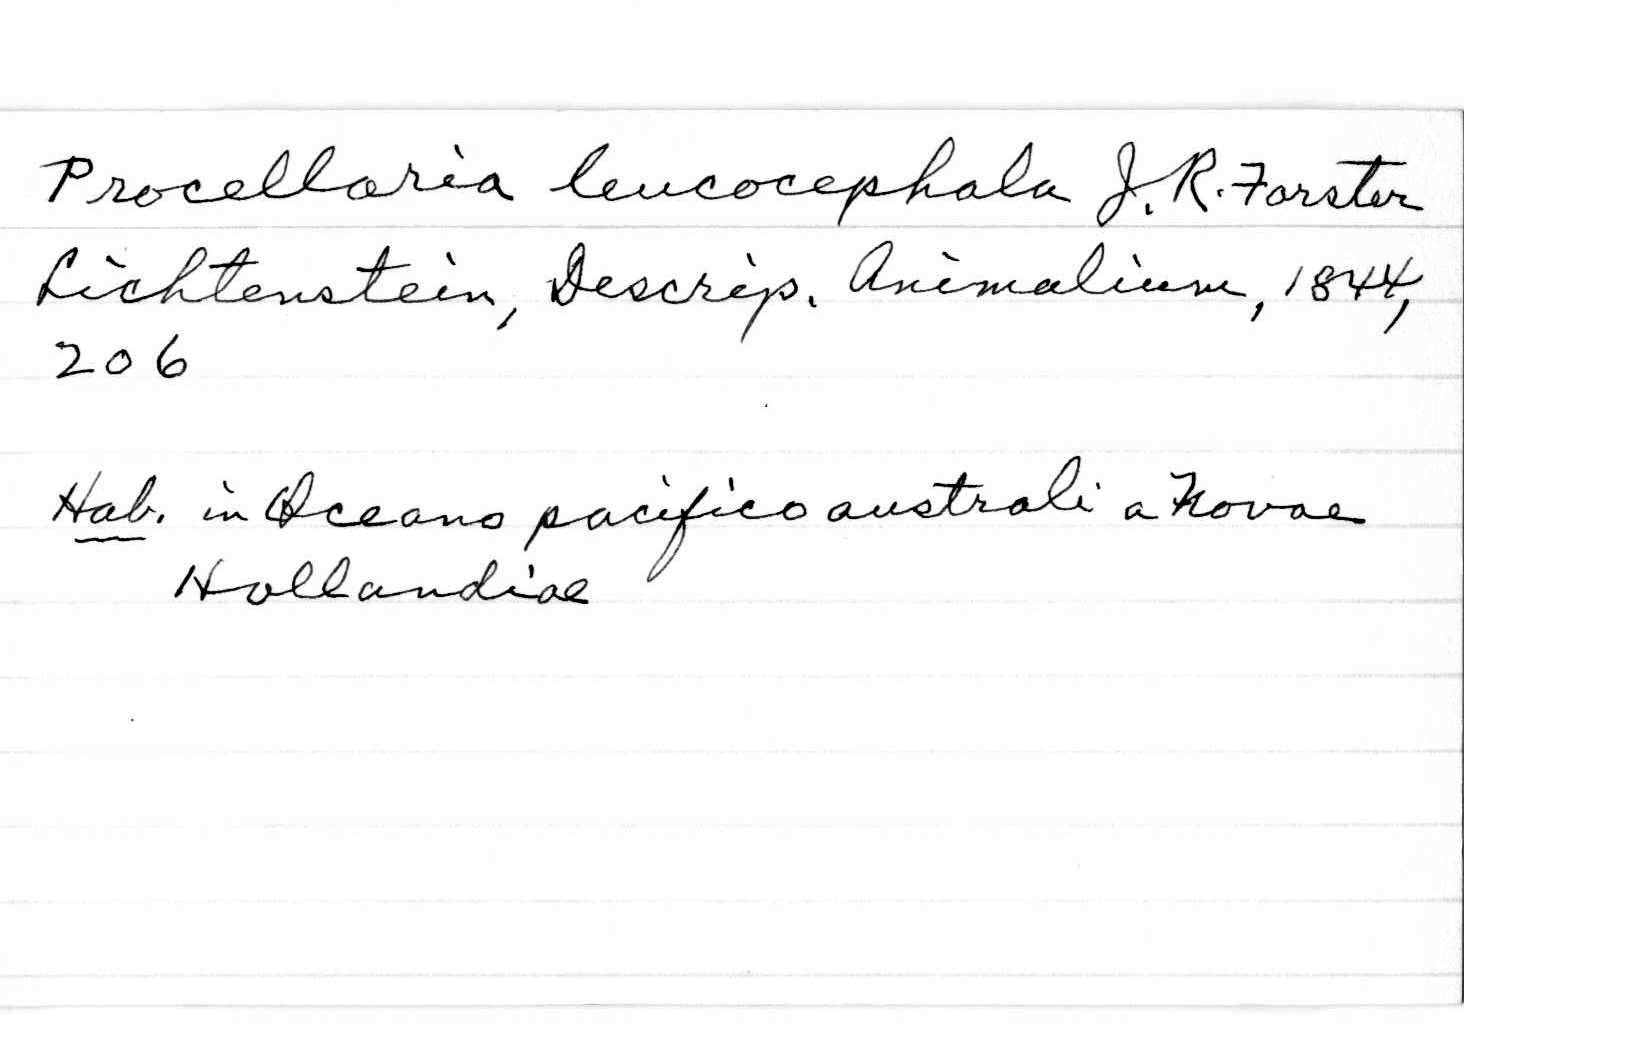 Procellaria leucocephala J. R. Forster
Lichtenstein, Descrip. Animalium, 1844,
206
Hab. in Oceano pacifico australi a Novae
Hollandiae